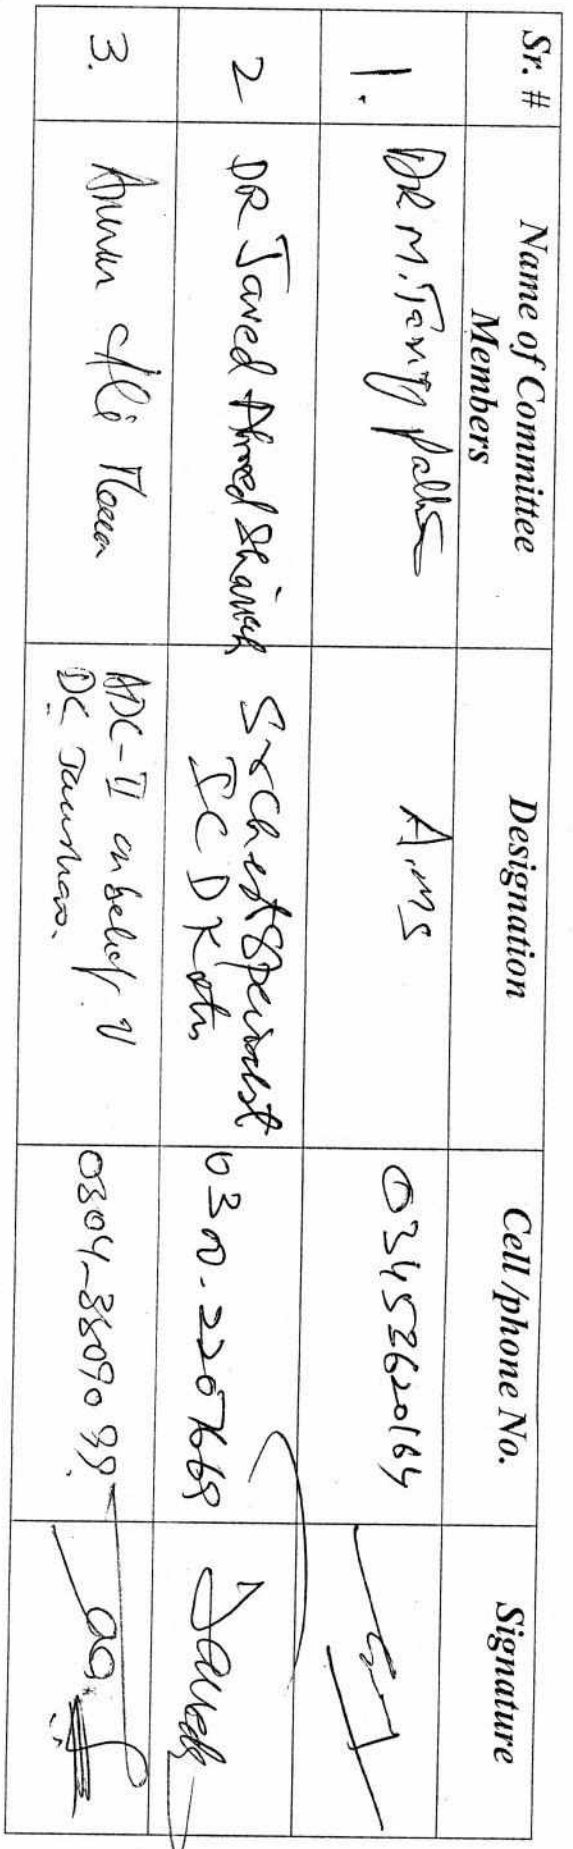 Sr. # Name of Committee Members Designation Cell/phone No. Signature
1. DR M. A.M.S 03453620164
2 DR Javed Ahmed Shaikh Sr Chest Specialist ICD Kotri 0300-2207669 Javed
3. Ali ADC-II on behalf of DC Jamshoro. 0304-